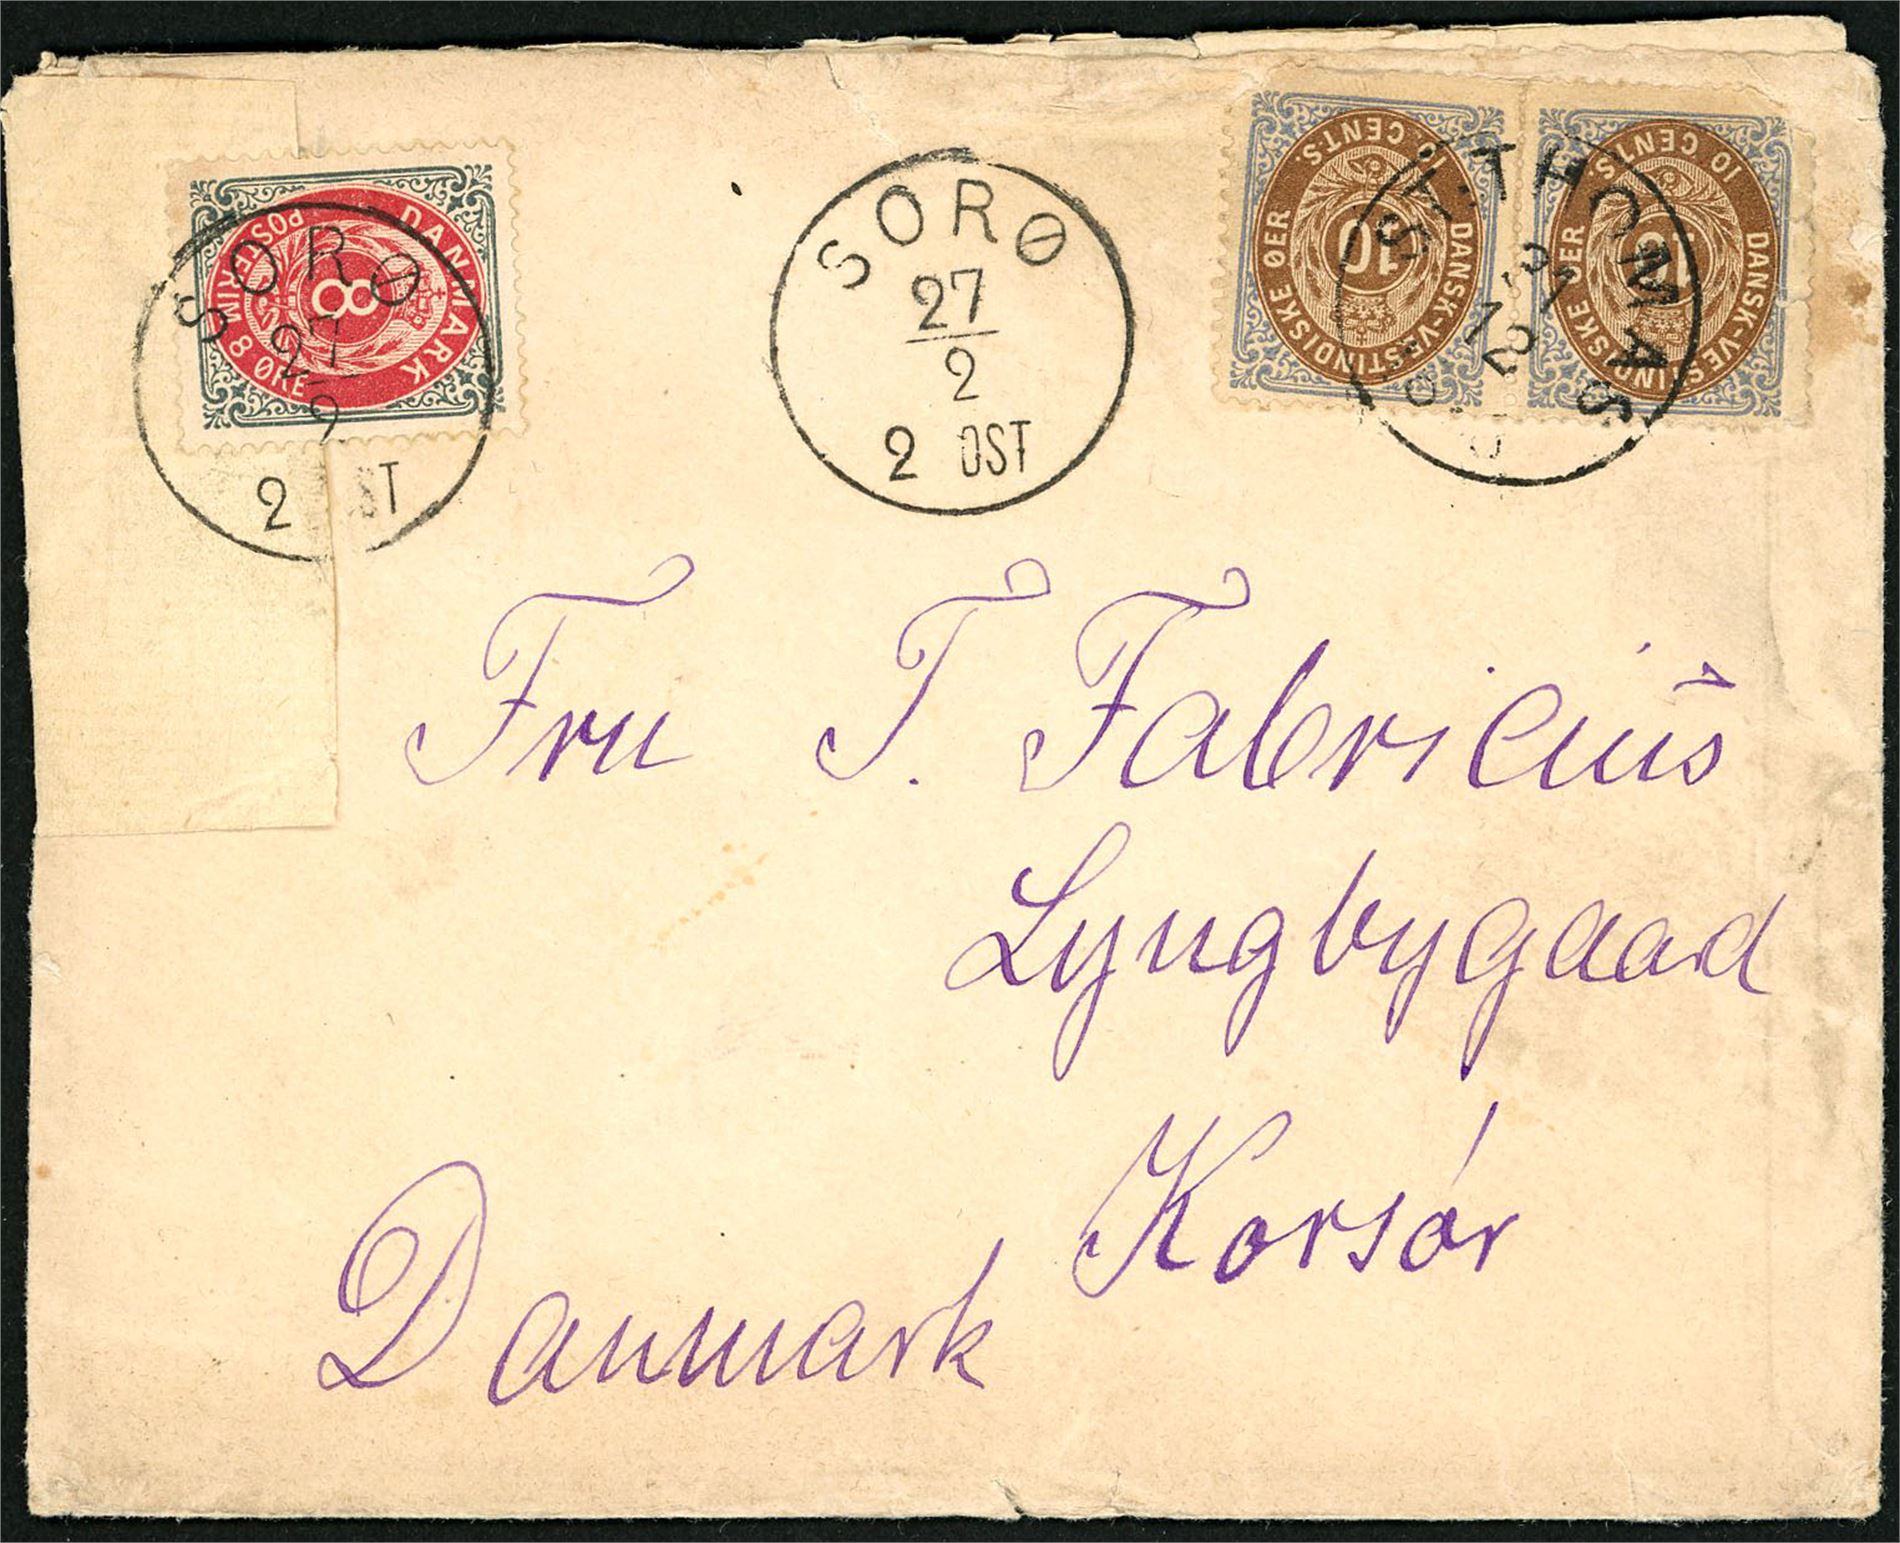 DANMARK
POSTFRIM 8 ØRE
8
SORØ
27
2
2 ST
SORØ
27
2
2 OST
10 CENTS.
DANSK-VESTINDISKE ØER
10
10 CENTS.
DANSK-VESTINDISKE ØER
10
ST. THOMAS
31
12
Fru T. Fabricius
Lyngbygaard
Korsør
Danmark